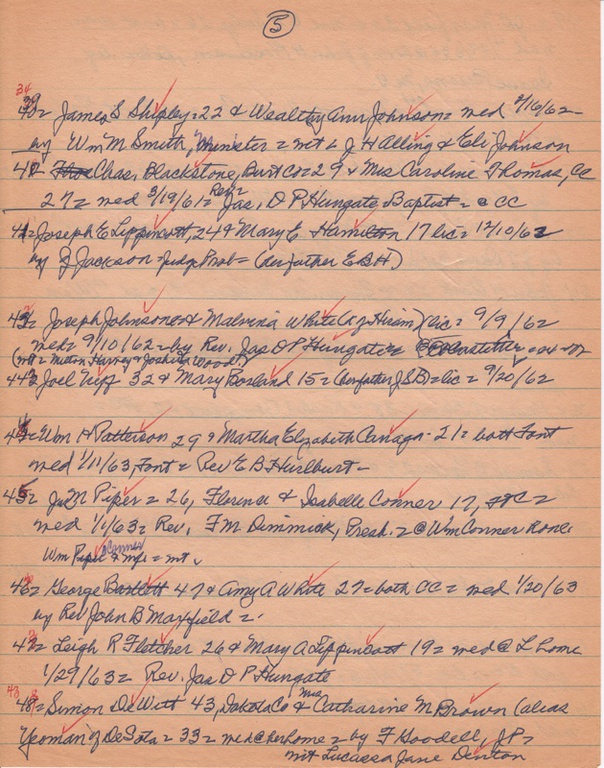 5
34
40= James S Shipley = 22 & Wealthy Ann Johnson = med 2/16/62 -
by Wm M Smith, Minister = wt = J H Alling & Eli Johnson
41= Chas. Blackstone, Burt Co = 29 & Miss Caroline Thomas, CC
27 = med 3/19/61 = Rev = Jas. O P Hungate Baptist = @ CC
Joseph E Lippincott, 24 & Mary E Hamilton 17 lic = 12/10/62
by J Jackson = Judge Prob = (her father E B H)
43= Joseph Johnson & Malvina White (of Hiram) lic = 9/9/62
med = 9/10/62 = by Rev. Jas O P Hungate =
(wt = Milton Harney & Joshua Wood)
44= Joel Neff 32 & Mary Borland 15 = (her father J S B) = lic = 9/20/62
Wm H Patterson 29 & Martha Elizabeth Canaga - 21 = both Font
med 1/11/63, Font = Rev E B Hurlburt -
45= M Piper = 26, Florence & Isabelle Conner 17, =
med 1/1/63 = Rev. F M Dimmick, Presb. = @ Wm Conner
Wm Conner & = wt
46= George Bartlett 47 & Amy A White 27 = both CC = med 1/20/63
by Rev John B Maxfield =
47= Leigh R Fletcher 26 & Mary A Lippincott 19 = med @ L home
1/29/63 = Rev. Jas O P Hungate
43
48= Simon DeWitt 43, Dakota Co & Mrs Catharine M Brown (alias
Yeoman of DeSota = 33 = med @ her home = by F Goodell, J P =
wit Lucussa Jane Denton